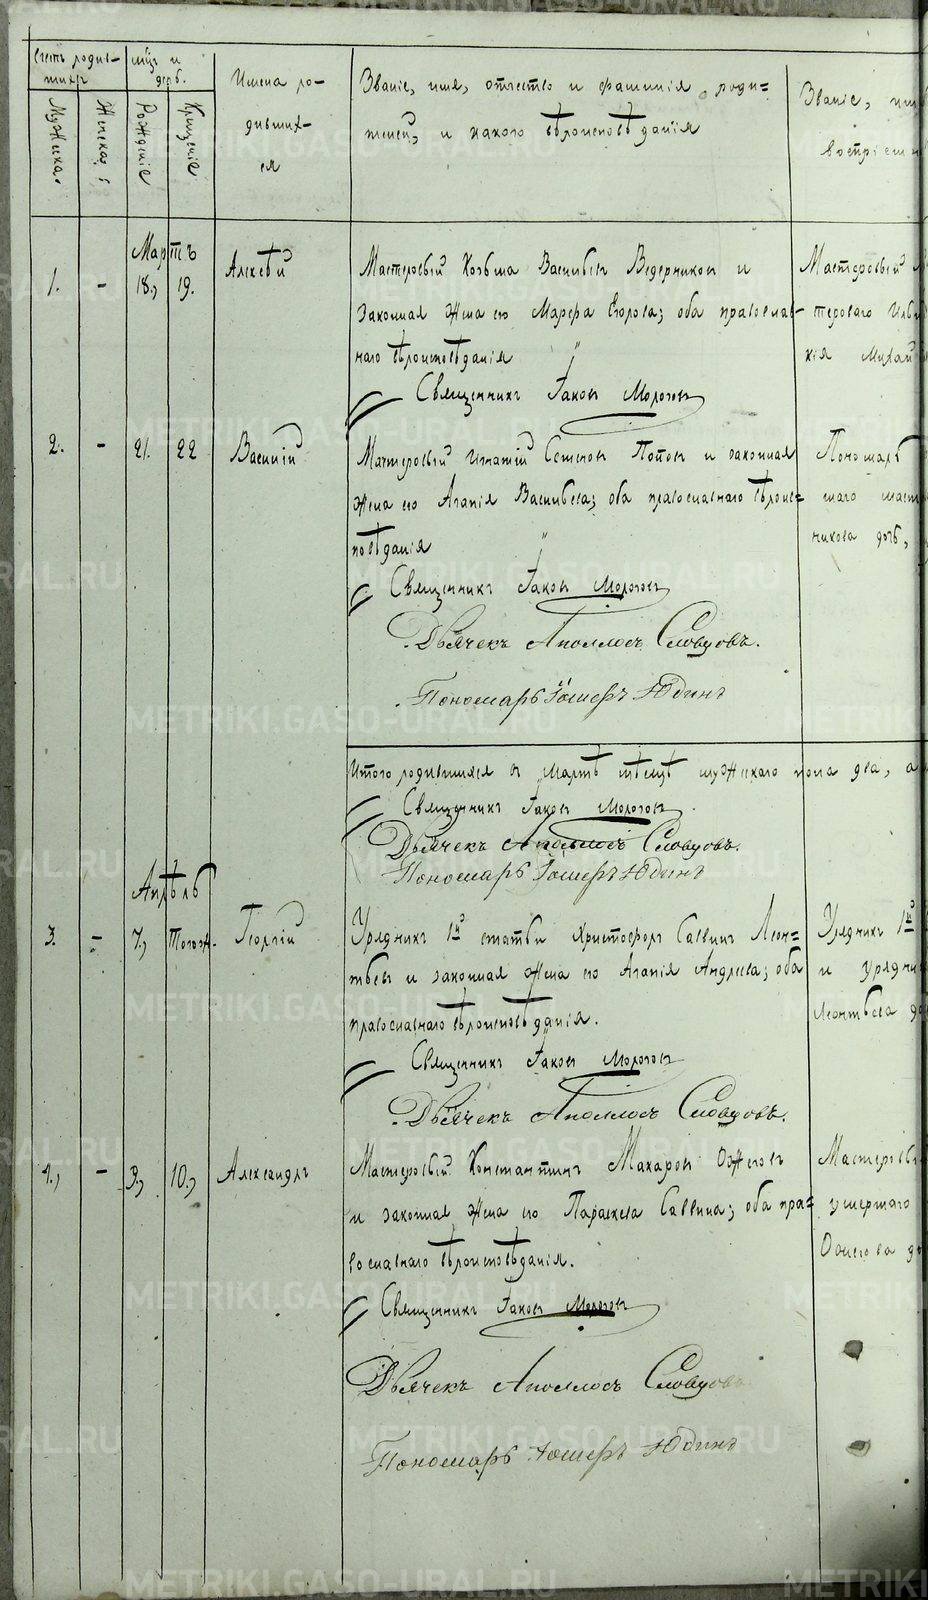 Счетъ родив-
шихся
Мѣсяцъ и
день.
Имена ро-
дивших-
ся
Званіе, имя, отчество и фамилія роди=
телей, и какого вѣроисповѣданія
Званіе,
воспріем
Мужеска.
Женска.
Рожденіе
Крещеніе.
Мартъ
1. - 18., 19. Алексѣй
Мастеровый Козьма Васильевъ Ведерниковъ и
законная жена его Марфа Егорова; оба православ-
наго вѣроисповѣданія
Священникъ Іаковъ Мологовъ
Мастеровый
тероваго
кія Михай
2. - 21. 22 Василій
Мастеровый Игнатій Семеновъ Поповъ и законная
жена его Агапія Васильева; оба православнаго вѣроис=
повѣданія
Священникъ Іаковъ Мологовъ
Дьячекъ Аполлосъ Словцовъ.
Пономарь Іосифъ Юдинъ
Пономарь
скаго маст
никова дочь,
Итого родившихся въ Мартѣ мѣсяцѣ мужескаго пола два, а
Священникъ Іаковъ Мологовъ
Дьячекъ Аполлосъ Словцовъ.
Пономарь Іосифъ Юдинъ
Апрѣль
3. - 7., Тогож. Георгій
Урядникъ 1й статьи Христофоръ Саввинъ Леон=
тьевъ и законная жена его Агапія Андреева; оба
православнаго вѣроисповѣданія.
Священникъ Іаковъ Мологовъ
Дьячекъ Аполлосъ Словцовъ.
Урядникъ 1й
и урядни
Леонтьева до
4., - 9., 10., Александръ
Мастеровый Константинъ Макаровъ Ожеговъ
и законная жена его Параскева Саввина; оба пра=
вославнаго вѣроисповѣданія.
Священникъ Іаковъ Мологовъ
Дьячекъ Аполлосъ Словцовъ.
Пономарь Іосифъ Юдинъ
Мастеровы
умершаго
Ожегова до
METRIKI.GASO-URAL.RU